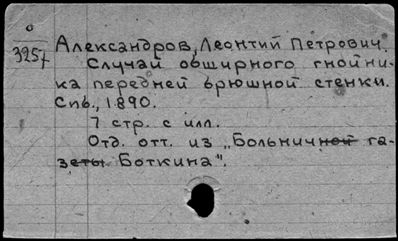 о
3257
Александров, Леонтий Петрович.
Случай обширного гнойни-
ка передней брюшной стенки.
Спб., 1890.
7 стр. с илл.
Отд. отт. из „Больничной га-
зеты Боткина".